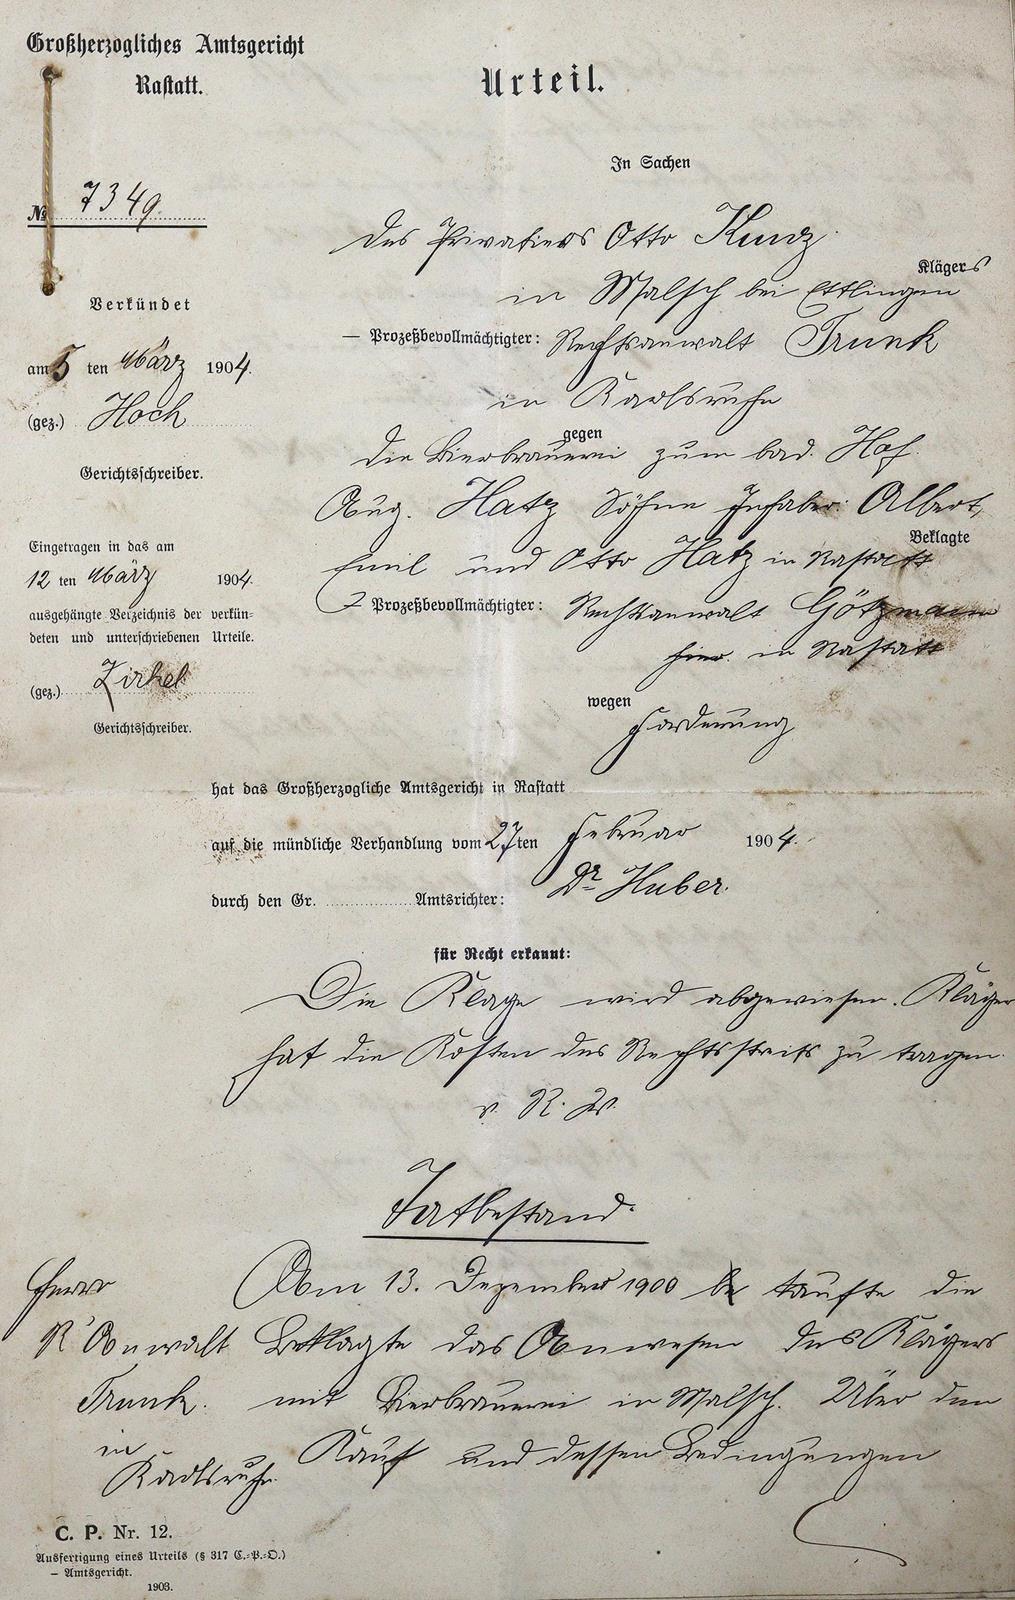 Großherzogliches Amtsgericht
Rastatt.
№ 7349.
Verkündet
am 5 ten März 1904.
(gez.) Hoch
Gerichtsschreiber.
Eingetragen in das am
12 ten März 1904.
ausgehängte Verzeichnis der verkün-
deten und unterschriebenen Urteile.
(gez.) Zirkel
Gerichtsschreiber.
Urteil.
In Sachen
des Privatiers Otto Kunz
Klägers
in Malsch bei Ettlingen
— Prozeßbevollmächtigter: Rechtsanwalt Trunk
in Karlsruhe
gegen
die Bierbrauerei zum bad. Hof
Aug. Hatz Söhne Inhaber: Albert,
Beklagte
Emil und Otto Hatz in Rastatt
Prozeßbevollmächtigter: Rechtsanwalt Götzmann
hier. in Rastatt
wegen
Forderung
hat das Großherzogliche Amtsgericht in Rastatt
auf die mündliche Verhandlung vom 27ten Februar 1904.
durch den Gr. Amtsrichter: Dr. Huber.
für Recht erkannt:
Die Klage wird abgewiesen. Kläger
hat die Kosten des Rechtsstreits zu tragen.
v. R. W.
Tatbestand.
Am 13. Dezember 1900 kaufte die
Beklagte das Anwesen des Klägers
mit Bierbrauerei in Malsch. Über den
Kauf und dessen Bedingungen
Herrn
R'Anwalt
Trunk.
in
Karlsruhe
C. P. Nr. 12.
Ausfertigung eines Urteils (§ 317 C.-P.-O.)
— Amtsgericht.
1903.